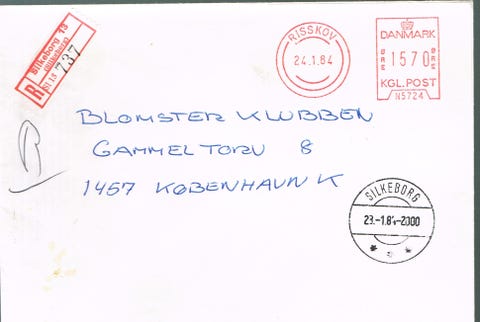 R
Silkeborg 13
(Silkeborg)
737
RISSKOV
24.1.84
DANMARK
ØRE 1570 ØRE
KGL.POST
N5724
BLOMSTER KLUBBEN
GAMMEL TORV 8
1457 KØBENHAVN K
SILKEBORG
23.-1.84-2000